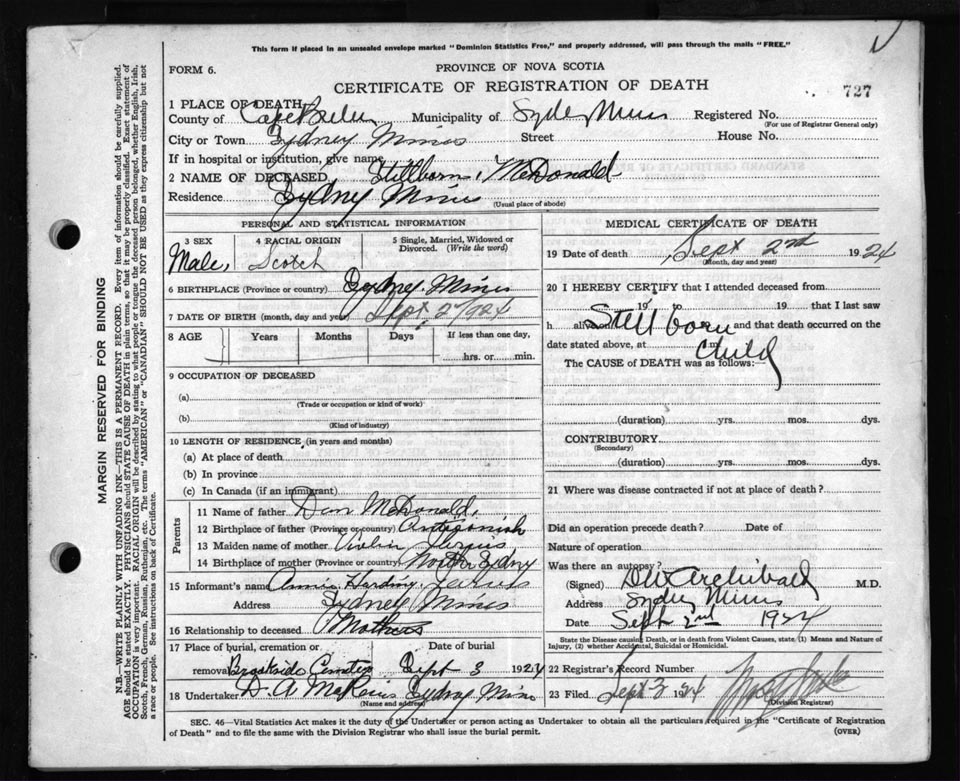 This form if placed in an unsealed envelope marked "Dominion Statistics Free," and properly addressed, will pass through the mails "FREE."
FORM 6.
PROVINCE OF NOVA SCOTIA
CERTIFICATE OF REGISTRATION OF DEATH
727
1 PLACE OF DEATH
County of Cape Breton Municipality of Sydney Mines Registered No.
(For use of Registrar General only)
City or Town Sydney Mines Street House No.
If in hospital or institution, give name
2 NAME OF DECEASED Stillborn McDonald
Residence Sydney Mines
(Usual place of abode)
PERSONAL AND STATISTICAL INFORMATION
3 SEX 4 RACIAL ORIGIN 5 Single, Married, Widowed or Divorced. (Write the word)
Male, Scotch
6 BIRTHPLACE (Province or country) Sydney Mines
7 DATE OF BIRTH (month, day and year) Sept 2 1924
8 AGE Years Months Days If less than one day,
hrs. or min.
9 OCCUPATION OF DECEASED
(a)
(Trade or occupation or kind of work)
(b)
(Kind of industry)
10 LENGTH OF RESIDENCE (in years and months)
(a) At place of death
(b) In province
(c) In Canada (if an immigrant)
Parents
11 Name of father Dan McDonald,
12 Birthplace of father (Province or country) Antigonish
13 Maiden name of mother
14 Birthplace of mother (Province or country) North Sydney
15 Informant's name Annie Harding
Address Sydney Mines
16 Relationship to deceased
17 Place of burial, cremation or Date of burial
removal Brookside Sept 3 1924
18 Undertaker D. A. Sydney Mines
(Name and address)
MEDICAL CERTIFICATE OF DEATH
19 Date of death Sept 2nd 1924
(Month, day and year)
20 I HEREBY CERTIFY that I attended deceased from
19 to 19 that I last saw
h alive on Still born and that death occurred on the
date stated above, at m. Child
The CAUSE of DEATH was as follows:
(duration) yrs. mos. dys.
CONTRIBUTORY
(Secondary)
(duration) yrs. mos. dys.
21 Where was disease contracted if not at place of death?
Did an operation precede death? Date of
Nature of operation
Was there an autopsy?
(Signed) Archibald M.D.
Address Sydney Mines
Date Sept 2nd 1924
State the Disease causing Death, or in death from Violent Causes, state (1) Means and Nature of Injury, (2) whether Accidental, Suicidal or Homicidal.
22 Registrar's Record Number
23 Filed Sept 3 1924
(Division Registrar)
SEC. 46—Vital Statistics Act makes it the duty of the Undertaker or person acting as Undertaker to obtain all the particulars required in the "Certificate of Registration
of Death" and to file the same with the Division Registrar who shall issue the burial permit. (OVER)
MARGIN RESERVED FOR BINDING
N.B.—WRITE PLAINLY WITH UNFADING INK—THIS IS A PERMANENT RECORD. Every item of information should be carefully supplied.
AGE should be stated EXACTLY. PHYSICIANS should STATE CAUSE OF DEATH in plain terms, so that it may be properly classified. Exact statement of
OCCUPATION is very important. RACIAL ORIGIN will be described by stating to what people or tongue the deceased person belonged, whether English, Irish,
Scotch, French, German, Russian, Ruthenian, etc. The terms "AMERICAN" or "CANADIAN" SHOULD NOT BE USED as they express citizenship but not
a race or people. See instructions on back of Certificate.